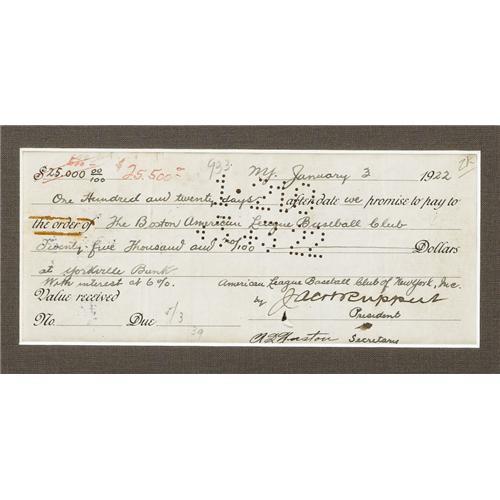 500 -
$25,000 00/100 $ 25,500 - 933 NY. January 3 1922
One Hundred and twenty days after date we promise to pay to
the order of The Boston American League Baseball Club
Twenty five Thousand and no/100 Dollars
at Yorkville Bank
With interest at 6%. American League Baseball Club of New York, Inc.
Value received by Jacob Ruppert
President
No. Due 5/3
39
Secretary